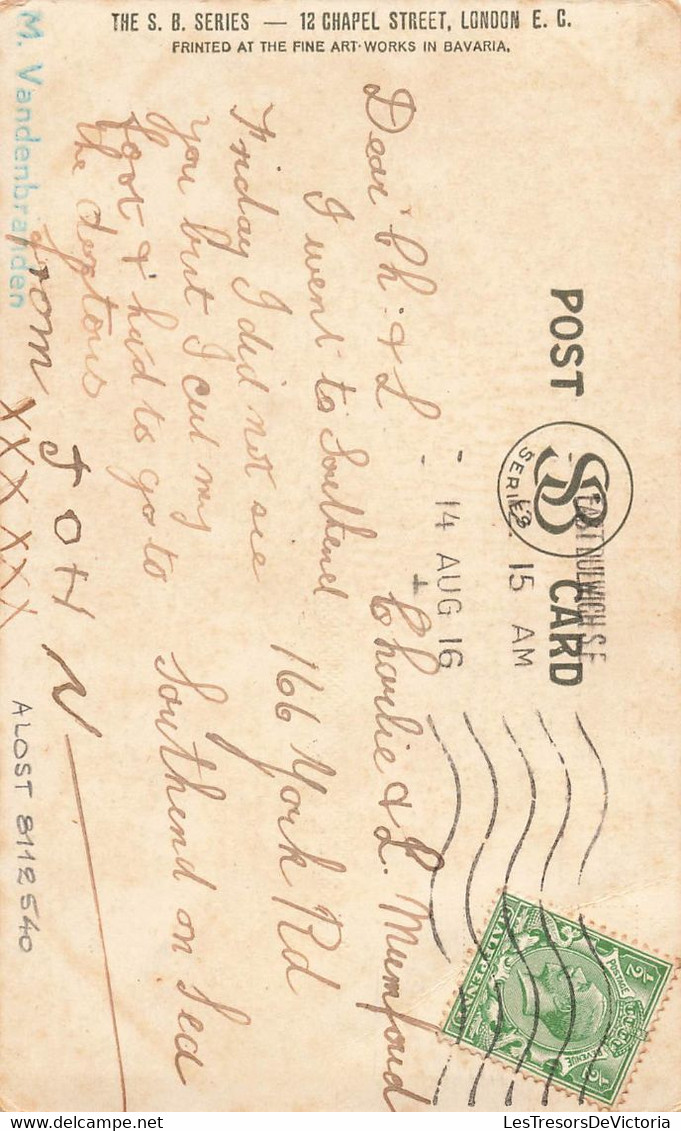 THE S. B. SERIES — 12 CHAPEL STREET, LONDON E. C.
PRINTED AT THE FINE ART-WORKS IN BAVARIA.
POST CARD
SB
SERIES
EAST DULWICH S.E
15 AM
14 AUG 16
Dear Ch. & L
I went to Southend
Friday I did not see
you but I cut my
foot & had to go to
the doctors
from JOHN
XXXXXX
Charlie & L. Mumford
166 York Rd
Southend on Sea
POSTAGE
REVENUE
½
½
HALFPENNY
M. Vandenbranden
ALOST 8112540
LesTresorsDeVictoria